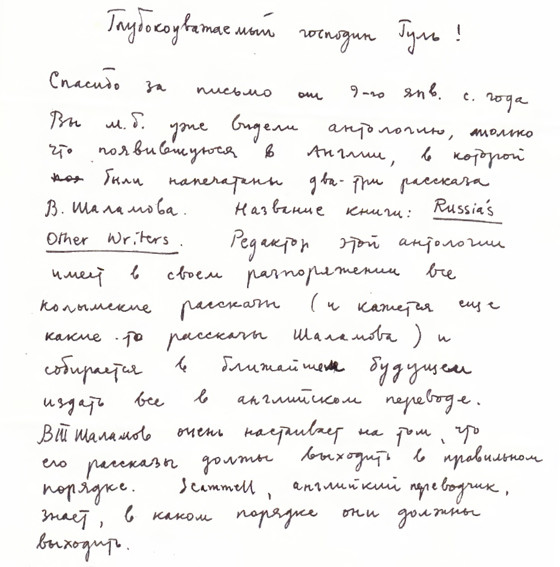 Глубокоуважаемый господин Гуль!
Спасибо за письмо от 9-го янв. с. года
Вы м.б. уже видели антологию, только
что появившуюся в Англии, в которой
были напечатаны два-три рассказа
В. Шаламова. Название книги: Russia's
Other Writers. Редактор этой антологии
имеет в своем разпоряжении все
колымские рассказы (и кажется еще
какие-то рассказы Шаламова) и
собирается в ближайшем будущем
издать все в английском переводе.
ВТШаламов очень настаивает на том, что
его рассказы должны выходить в правильном
порядке. Scammell, английский переводчик,
знает, в каком порядке они должны
выходить.